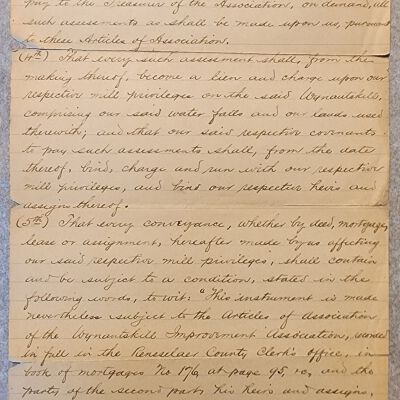 pay to the Treasurer of the Association, on demand, all
such assessments as shall be made upon us, pursuant
to these Articles of Association.
(4th) That every such assessment shall, from the
making thereof, become a lien and charge upon our
respective mill privileges on the said Wynantskill,
comprising our said water falls and our lands used
therewith; and that our said respective covenants
to pay such assessments shall, from the date
thereof, bind, charge and run with our respective
mill privileges, and bind our respective heirs and
assigns thereof.
(5th) That every conveyance, whether by deed, mortgage,
lease or assignment, hereafter made by us affecting
our said respective mill privileges, shall contain
and be subject to a condition, stated in the
following words, to wit: "This instrument is made
nevertheless subject to the Articles of Association
of the Wynantskill Improvement Association, recorded
in full in the Rensselaer County Clerk's office, in
book of mortgages No 176, at page 95, &c, and the
party of the second part, his heirs and assigns,